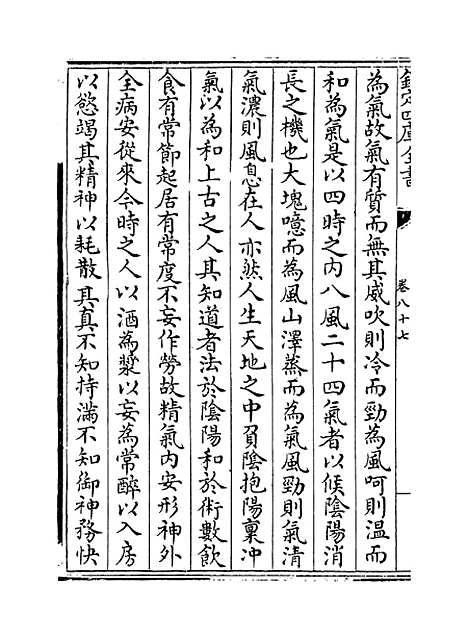 欽定四庫全書
卷八十七
為氣故氣有質而無其威吹則冷而勁為風呵則温而
和為氣是以四時之内八風二十四氣者以候陰陽消
長之機也大塊噫而為風山澤蒸而為氣風勁則氣清
氣濃則風息在人亦然人生天地之中負陰抱陽稟冲
氣以為和上古之人其知道者法於陰陽和於術數飲
食有常節起居有常度不妄作勞故精氣内安形神外
全病安從來今時之人以酒為漿以妄為常醉以入房
以慾竭其精神以耗散其真不知持滿不知御神務快